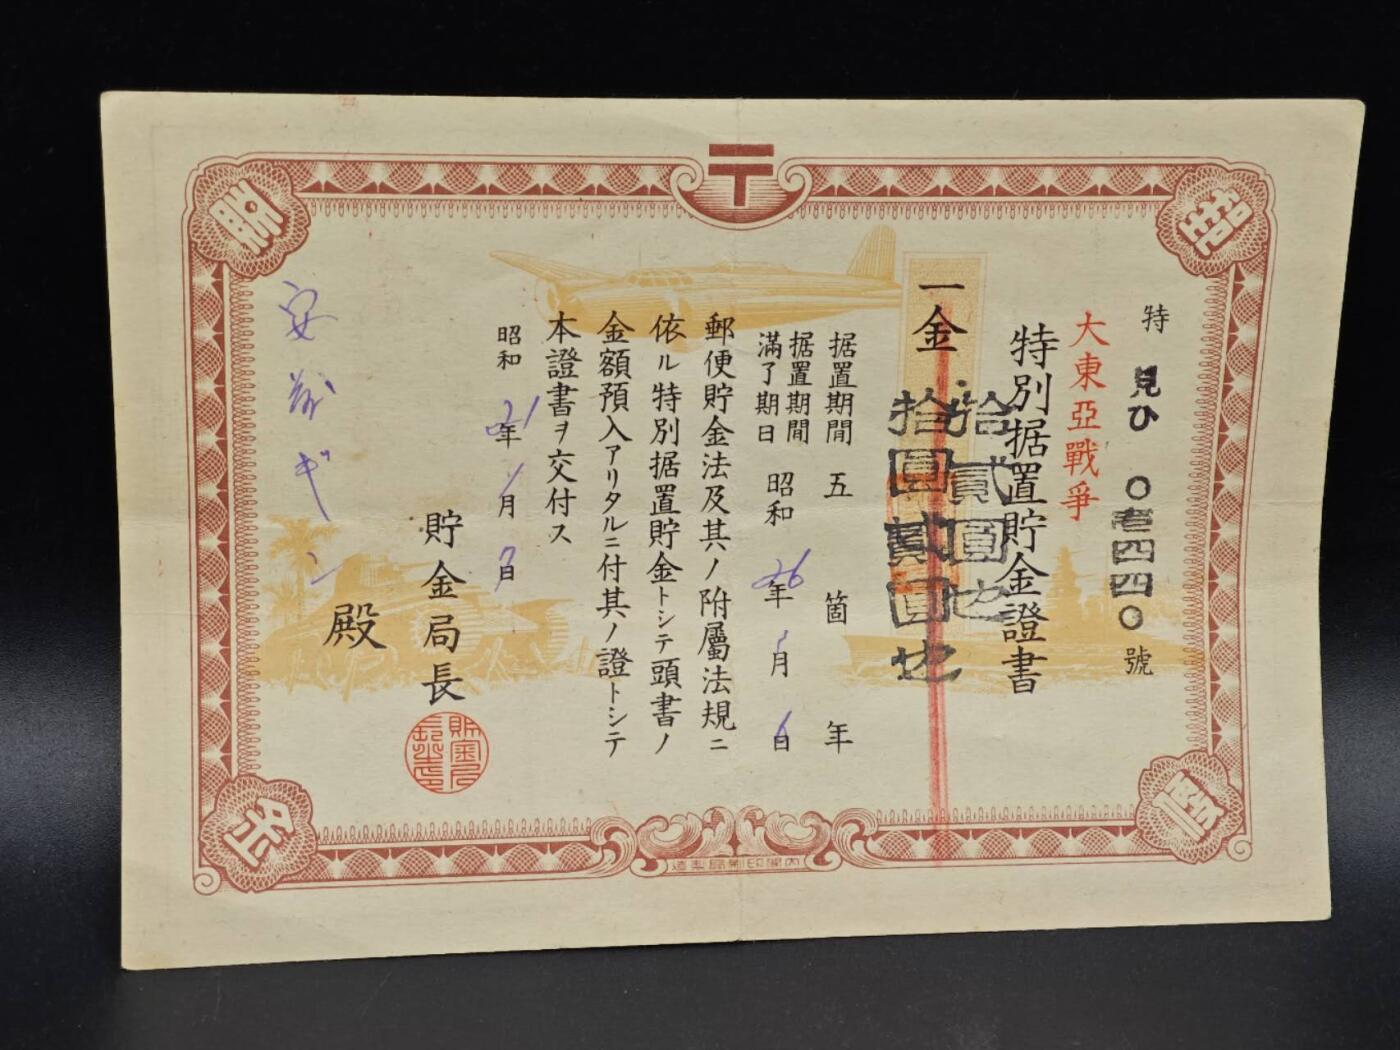 特 見ひ 〇壱四四〇 號
大東亞戰爭
特別据置貯金證書
一金
拾貳圓也
拾圓貳圓也
据置期間 五箇年
据置期間滿了期日 昭和26年1月6日
郵便貯金法及其ノ附屬法規ニ
依ル特別据置貯金トシテ頭書ノ
金額預入アリタルニ付其ノ證トシテ
本證書ヲ交付ス
昭和21年1月7日
貯金局長
貯金局長之印
殿
內閣印刷局製造